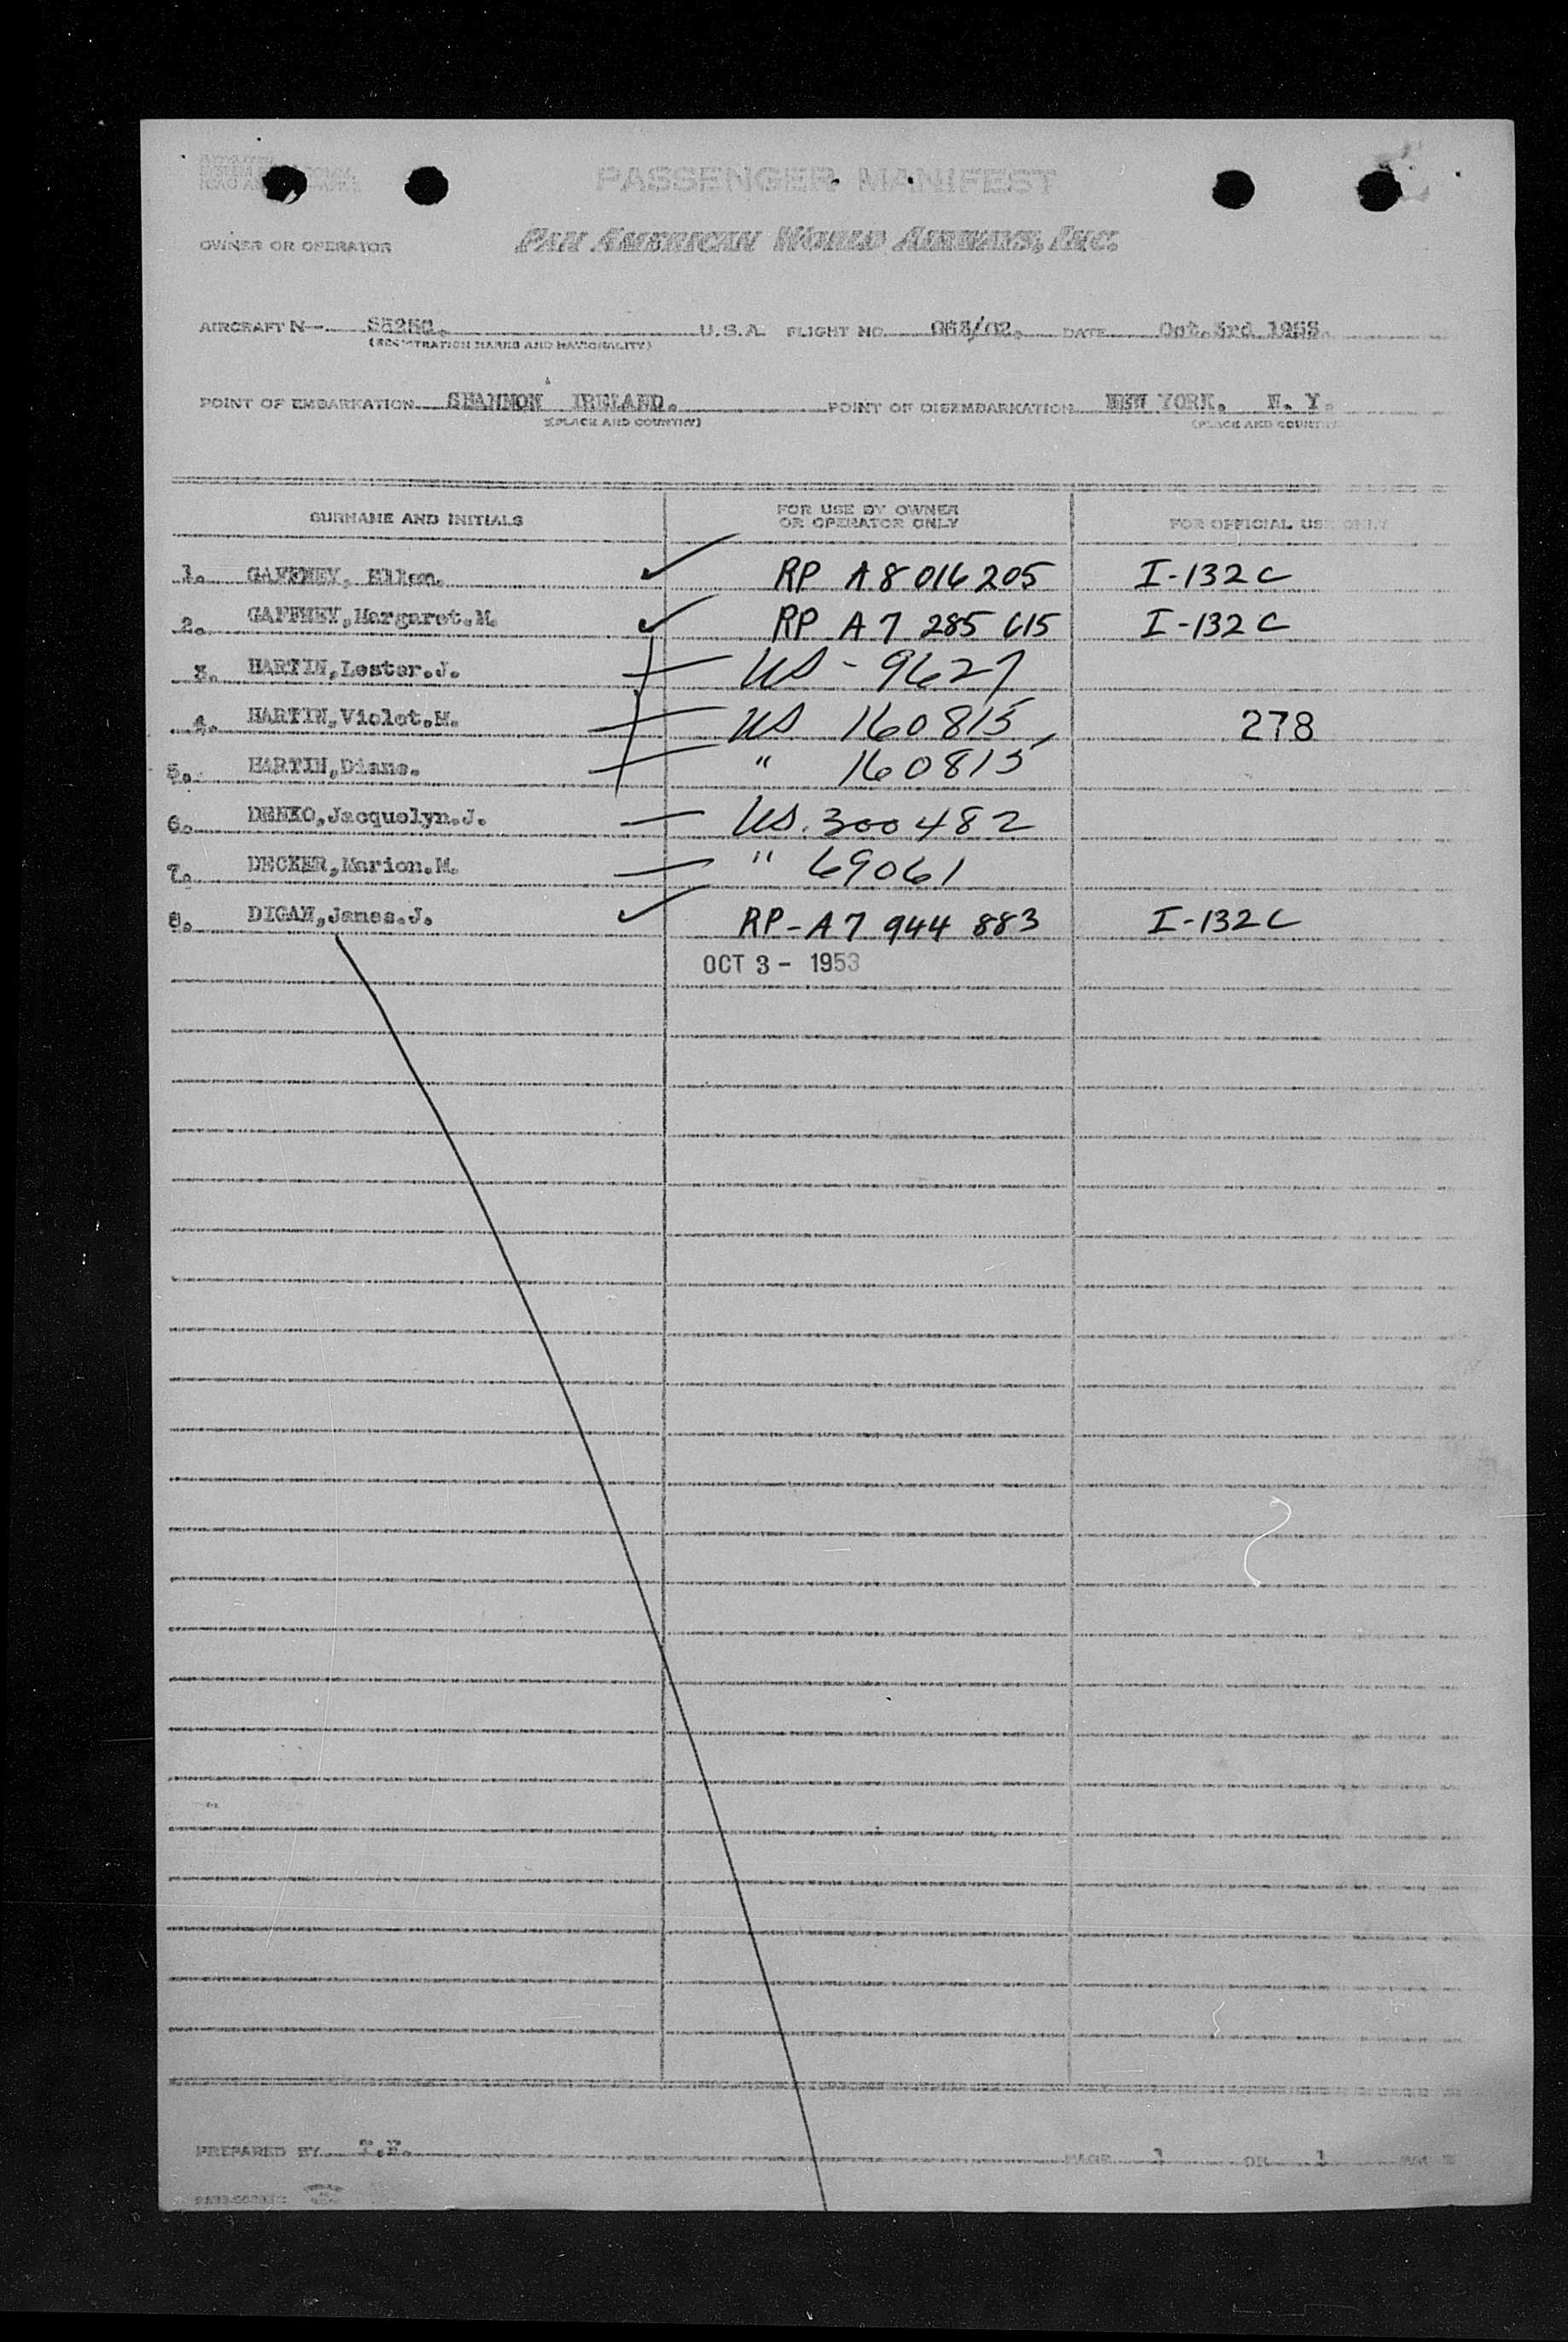 PASSENGER MANIFEST
OWNER OR OPERATOR PAN AMERICAN WORLD AIRWAYS, INC.
AIRCRAFT N- U.S.A. FLIGHT NO. DATE Oct.3rd 1953.
(REGISTRATION MARKS AND NATIONALITY)
POINT OF EMBARKATION SHANNON IRELAND. POINT OF DISEMBARKATION NEW YORK. N.Y.
(PLACE AND COUNTRY) (PLACE AND COUNTRY)
SURNAME AND INITIALS FOR USE BY OWNER OR OPERATOR ONLY FOR OFFICIAL USE ONLY
1. GAFFNEY, Ellen. RP A8 016 205 I-132C
2. GAFFNEY,Margaret.M. RP A7 285 615 I-132C
3. HARTIN,Lester.J. US - 9627
4. HARTIN,Violet.M. US 160815 278
5. HARTIN,Diane. " 160815
6. DENKO,Jacquelyn.J. US. 300482
7. DECKER,Marion.M. " 69061
8. DIGAN,James.J. RP-A7 944 883 I-132C
OCT 3 - 1953
PREPARED BY PAGE 1 OF 1